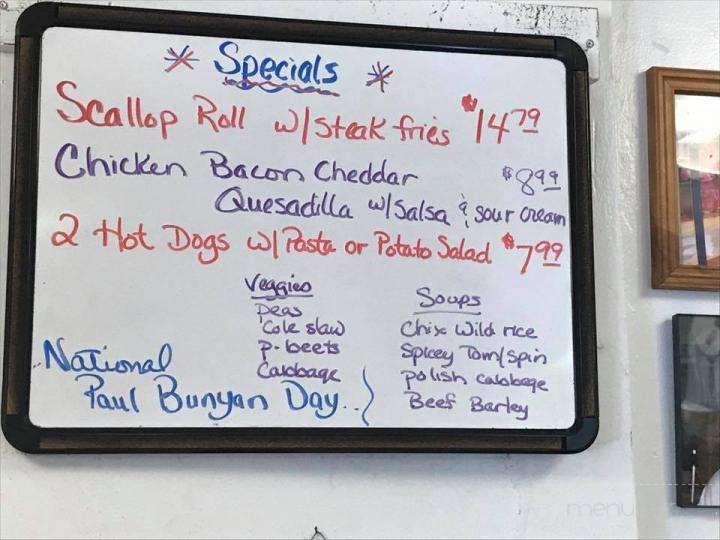 * Specials *
Scallop Roll w/steak fries $14.79
Chicken Bacon Cheddar $8.99
Quesadilla w/salsa & sour cream
2 Hot Dogs w/Pasta or Potato Salad $7.99
Veggies
Peas
Cole slaw
P-beets
Cabbage
Soups
Chix Wild rice
Spicey Tom/spin
polish cabbage
Beef Barley
National
Paul Bunyan Day..
menu